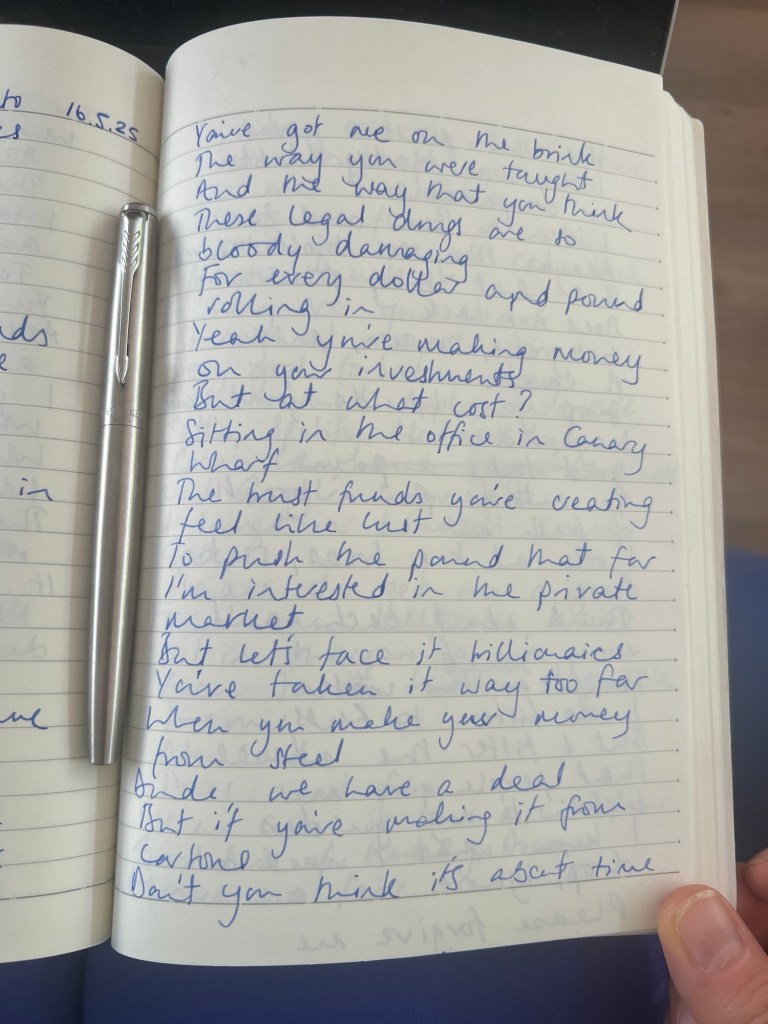 to 16.5.25
in
You've got me on the brink
The way you were taught
And the way that you think
These legal drugs are so
bloody damaging
For every dollar and pound
rolling in
Yeah you're making money
on your investments
But at what cost?
Sitting in the office in Canary
Wharf
The trust funds you're creating
feel like lust
To push the pound that far
I'm interested in the private
market
But let's face it billionaires
You've taken it way too far
When you make your money
from steel
Dude, we have a deal
But if you're making it from
Don't you think it's about time
Please forgive me